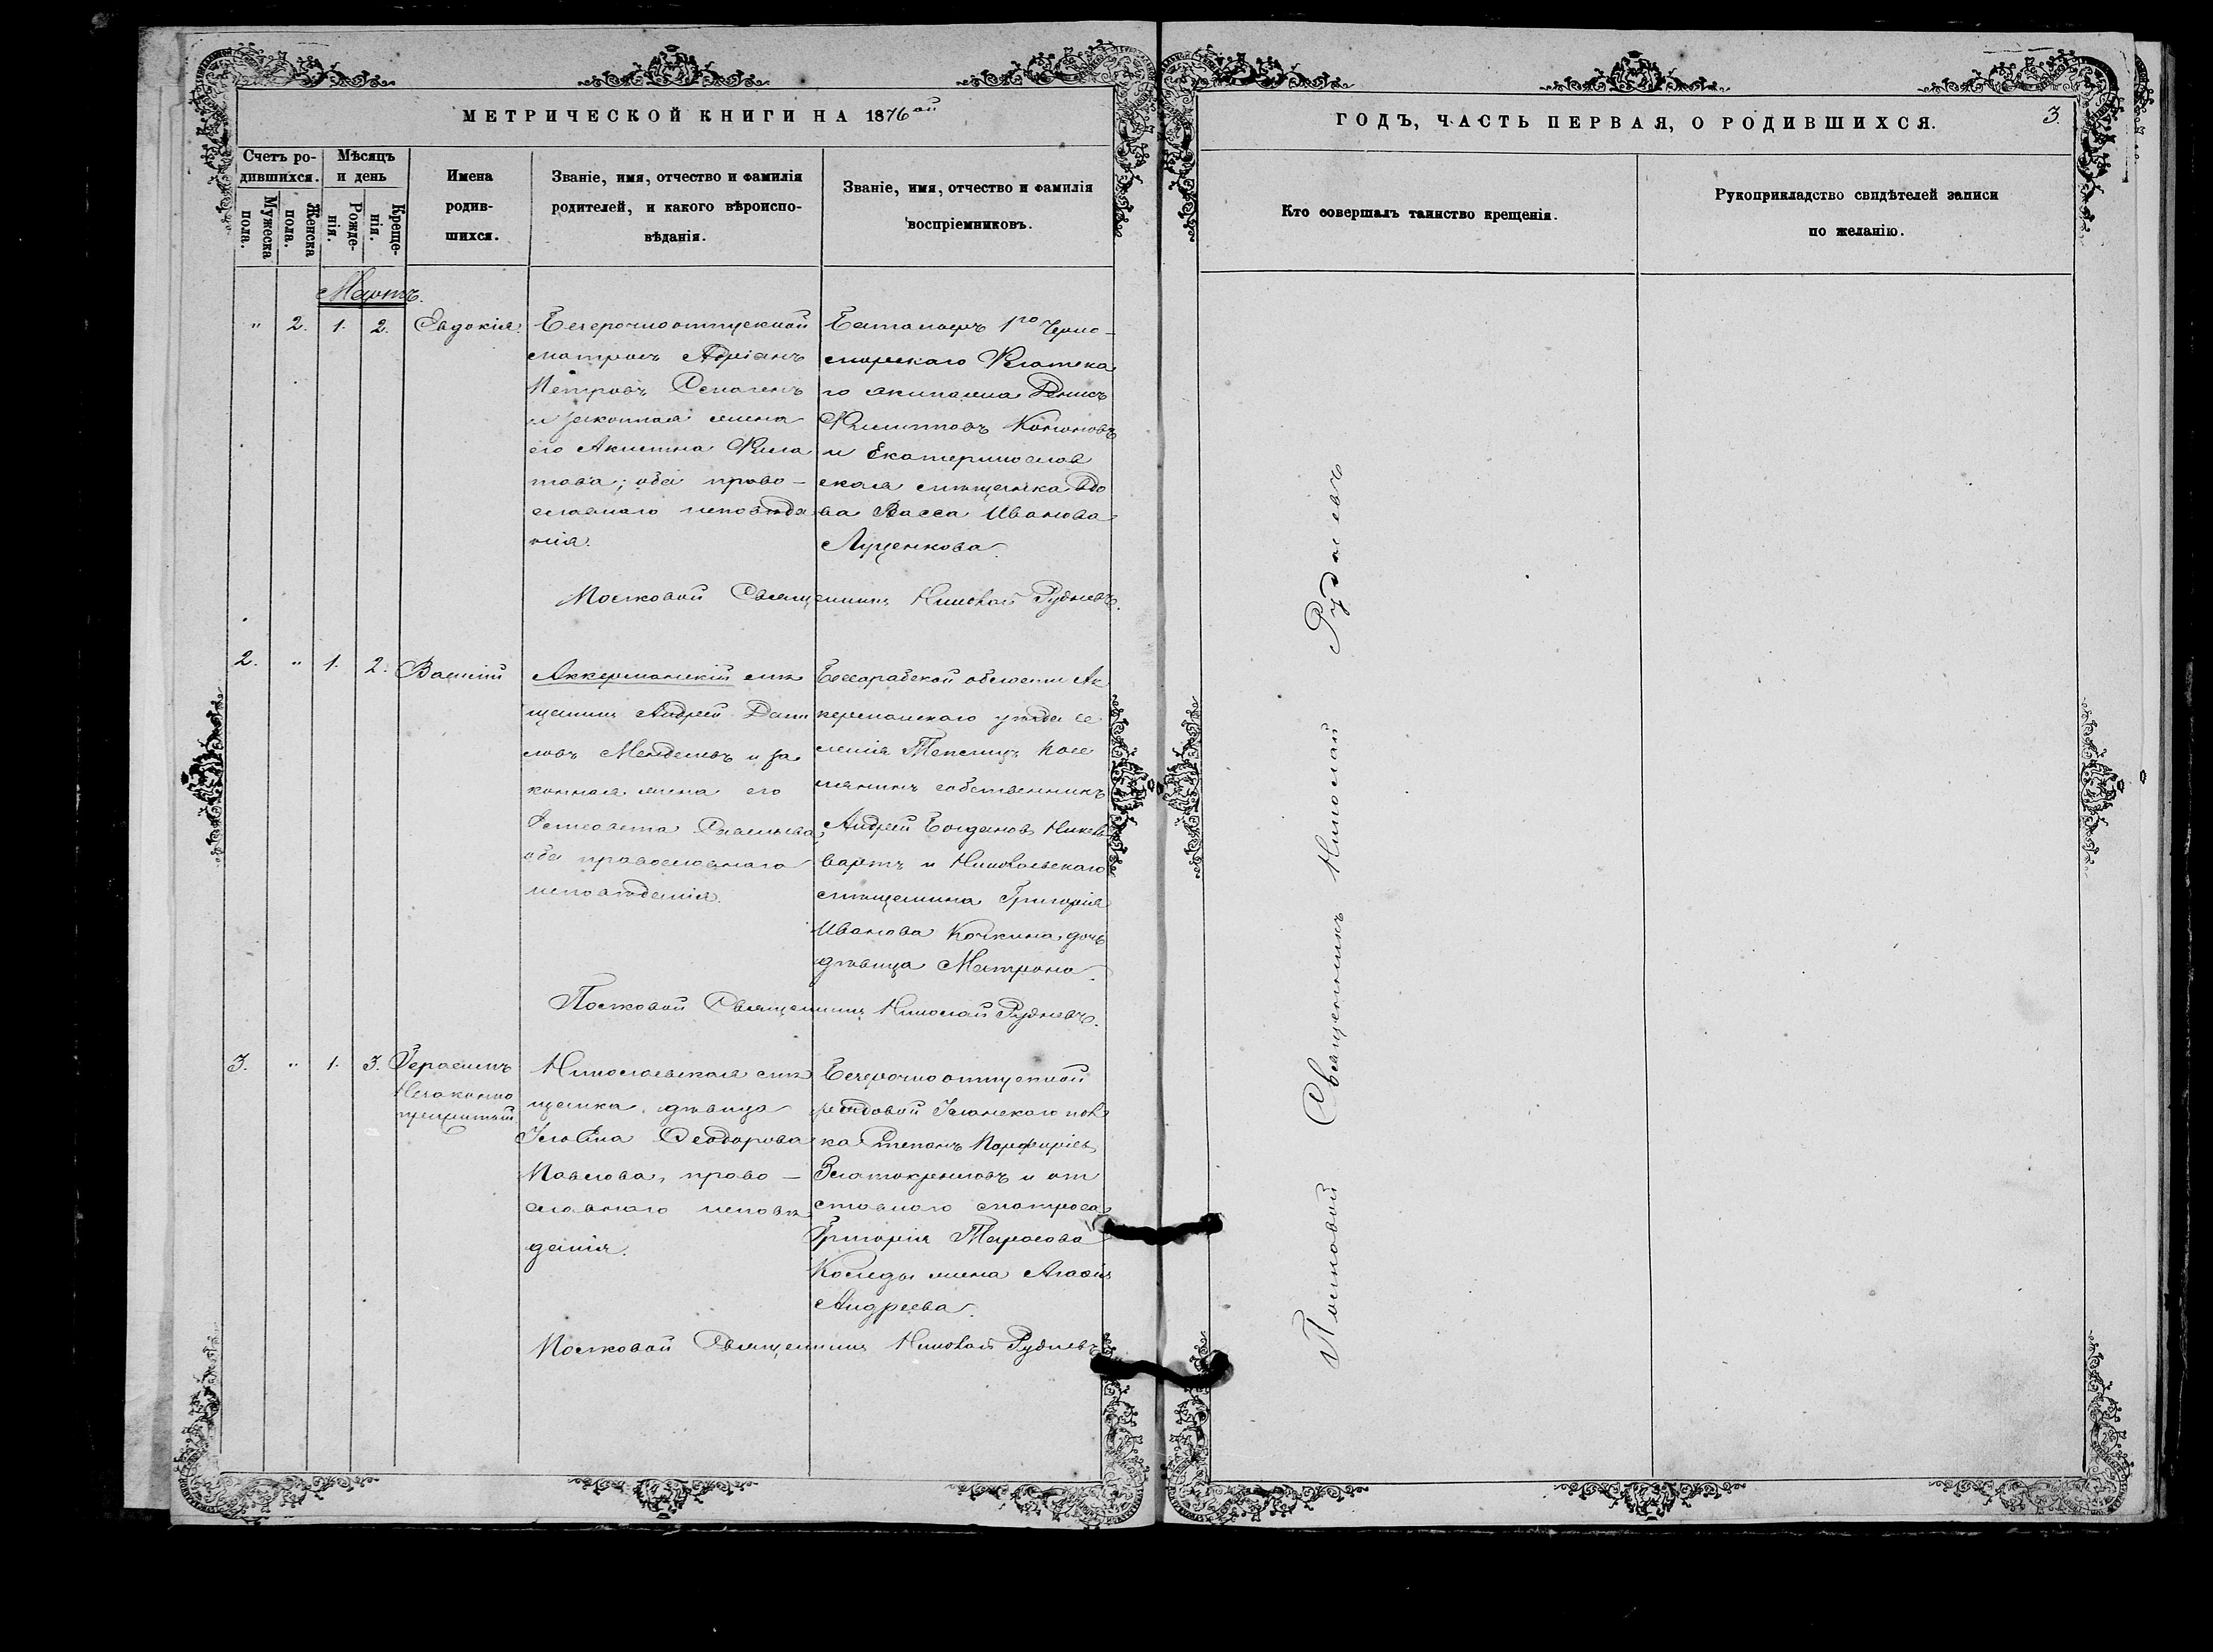 МЕТРИЧЕСКОЙ КНИГИ НА 1876ой
Счетъ ро-
дившихся.
Мѣсяцъ
и день
Мужеска
пола.
Женска
пола.
Рожде-
нія.
Креще-
нія.
Имена
родив-
шихся.
Званіе, имя, отчество и фамилія
родителей, и какого вѣроиспо-
вѣданія.
Званіе, имя, отчество и фамилія
воспріемниковъ.
Мартъ.
" 2. 1. 2. Евдокія.
Безсрочноотпускной
матросъ Адріанъ
Петровъ
и законная жена
его Акилина Фила
това; оба право-
славнаго исповѣда
нія.
1го Черно-
морскаго Флотска
го экипажа Денисъ
Филипповъ Кононовъ
и Екатеринослав
ская мѣщанка вдо
ва Васса Иванова
Луценкова.
Полковой Священникъ Николай Рудневъ.
2. " 1. 2. Василій
Аккерманскій мѣ
щанинъ Андрей Дани
ловъ и за
конная жена его
Елисавета Савельева,
оба православнаго
исповѣданія.
Бессарабской области Ак
керманскаго уѣзда се
ленія посе
лянинъ собственникъ
Андрей Богдановъ
и Николаевскаго
мѣщанина Григорія
Иванова Кочкина дочь
дѣвица Матрона.
Полковой Священникъ Николай Рудневъ.
3. " 1. 3. Герасимъ
Незаконно
прижитый
Николаевская мѣ
щанка, дѣвица
Феодорова
Павлова, право-
славнаго исповѣ
данія.
Безсрочноотпускной
рядовой Уланскаго пол
ка Степанъ Порфирьев
и от
ставнаго матроса
Григорія Тарасова
Коледы жена Агафія
Андреева.
Полковой Священникъ Николай Рудневъ
ГОДЪ, ЧАСТЬ ПЕРВАЯ, О РОДИВШИХСЯ.
3.
Кто совершалъ таинство крещенія.
Рукоприкладство свидѣтелей записи
по желанію.
Полковой Священникъ Николай Рудневъ